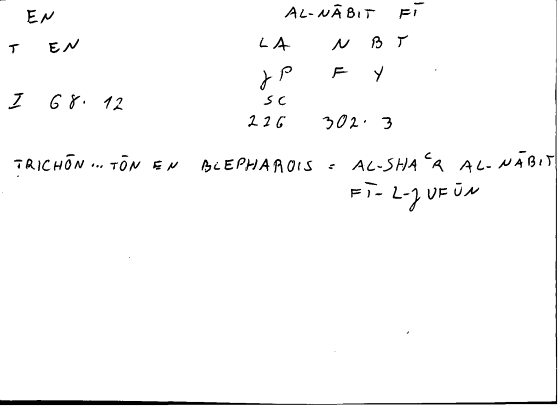 EN AL-NĀBIT FĪ
T EN LA N B T
JP F Y
I 68. 12 SC
226 302. 3
TRICHŌN... TŌN EN BLEPHAROIS = AL-SHAᶜR AL-NĀBIT
FĪ-L-JUFŪN